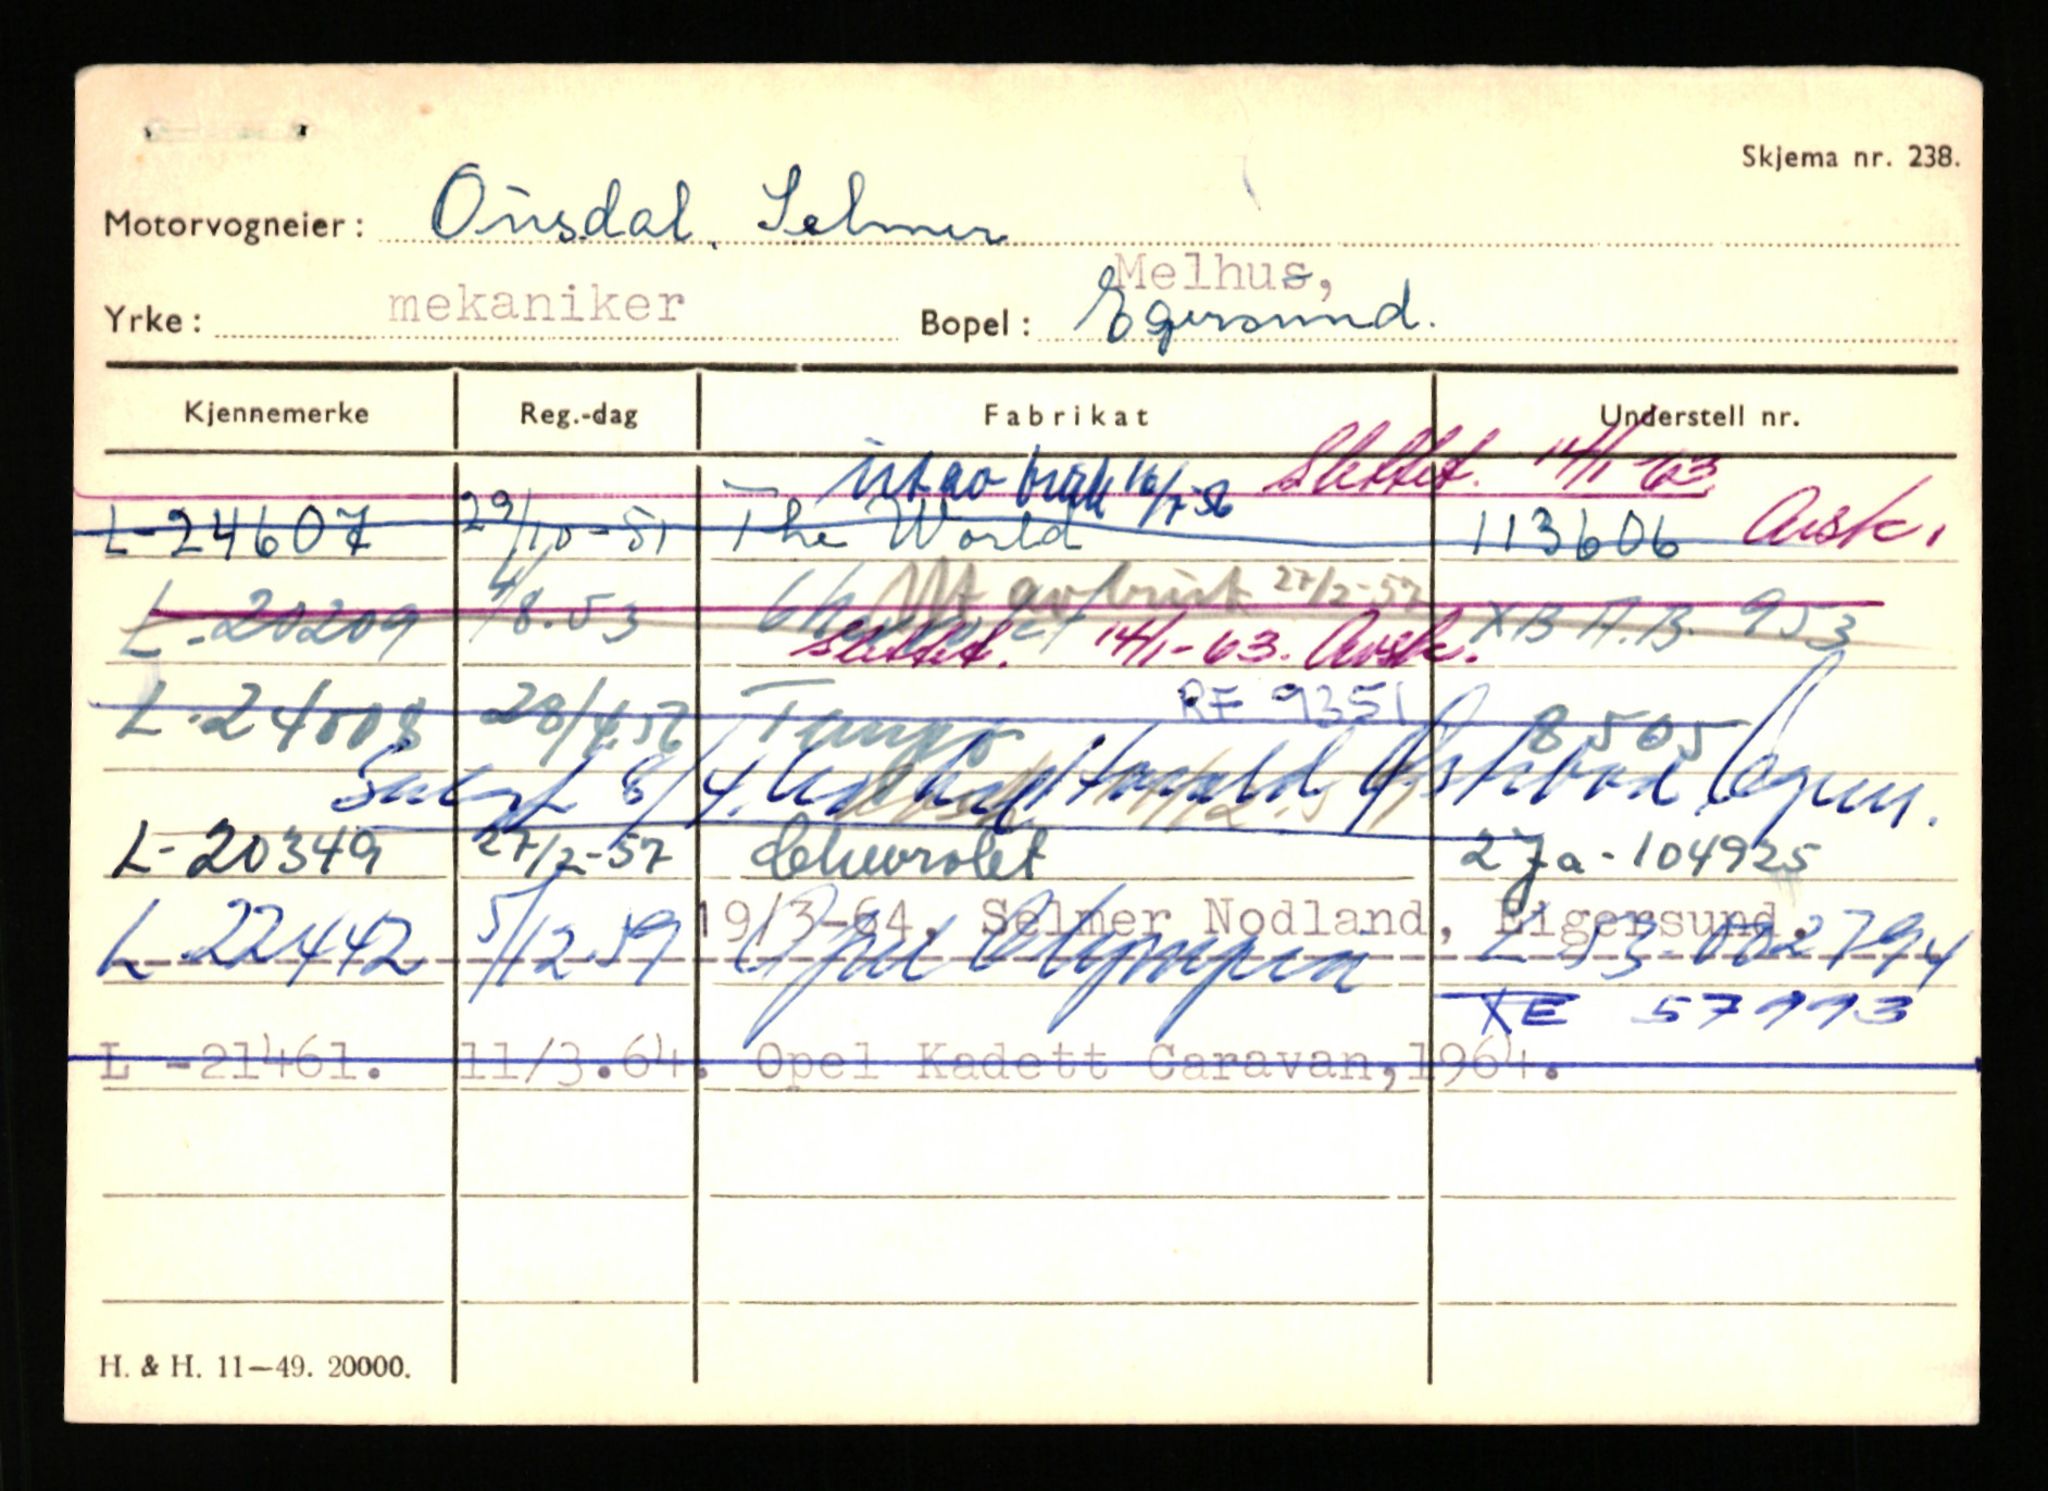 Skjema nr. 238.
Motorvogneier: Ousdal, Selmer
Melhus,
Yrke: mekaniker Bopel: Egersund.
Kjennemerke Reg.-dag Fabrikat Understell nr.
ut av bruk 16/7-56 Slettet. 14/1-63
L-24607 29/10-51 The World 113606 Avsk.
Ut av bruk 27/2-57
L-20209 4/8.53 953
Slettet. 14/1-63. Avsk.
RF 9351
L-24008 28/4.56 Tempo 8505
Solgt 8/4. Harald
L-20349 27/2-57 Chevrolet 2Ja-104925
19/3-64, Selmer Nodland, Eigersund.
L-22442 5/12.59 Opel Olympia L 53-002794
XE 57993
L -21461. 11/3.64. Opel Kadett Caravan,1964.
H. & H. 11—49. 20000.